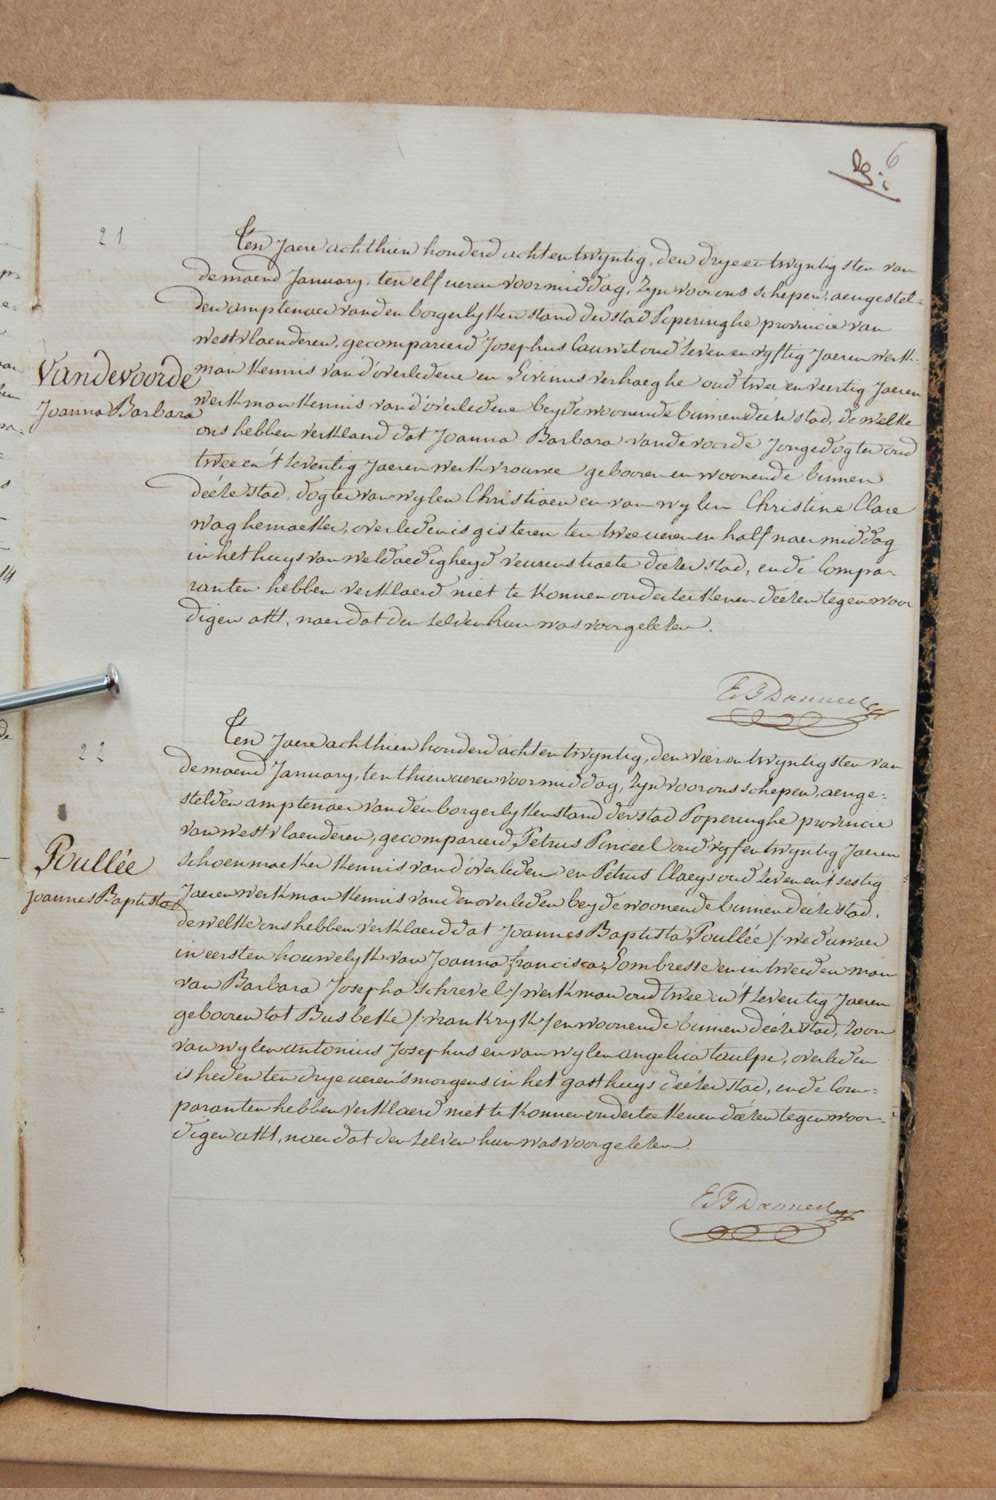 6
21
Ten Jaere achthien honderd achtentwyntig, den drye en twyntigsten van
de maend January, ten elf ueren voormiddag, Zyn voor ons schepen, aengestel-
den amptenaer van den borgerlyken stand der stad Poperinghe provincie van
westvlaenderen, gecompareerd Josephus Cauwet oud Zeven en vyftig Jaeren werk-
man Kennis van d'overledene en Livinus verhaeghe oud twee en veertig Jaeren
werkman Kennis van d'overledene beyde woonende binnen deéze stad, de welke
ons hebben verklaerd dat Joanna Barbara vandevoorde Jongedogter oud
twee en 't Zeventig Jaeren werkvrouwe gebooren en woonende binnen
deéze stad, dogter van wylen Christiaen en van wylen Christine Clare
waghemaeker, overleden is gisteren ten twee ueren en half naermiddag
in het huys van weldaedigheyd veurenstraete deézer stad, en de Compa-
ranten hebben verklaerd niet te konnen onderteekenen deézen tegenwoor
digen akt, naer dat den zelven hun was voorgelezen.
Vandevoorde
Joanna Barbara
22
Ten Jaere achthien honderd achtentwyntig, den vier en twyntigsten van
de maend January, ten thien ueren voormiddag, Zyn voor ons schepen, aenge-
stelden amptenaer van den borgerlyken stand der stad Poperinghe provincie
van westvlaenderen, gecompareerd Petrus Pinceel oud vyf en twyntig Jaeren
schoenmaeker Kennis van d'overleden en Petrus Claeys oud Zeven en 't sestig
Jaeren werkman Kennis van den overleden beyde woonende binnen deéze stad,
de welke ons hebben verklaerd dat Joannes Baptista Poullée / weduwaer
in eersten houwelyk van Joanna francisca Lombresse en in tweeden man
van Barbara Josepha Schrevel / werkman oud twee en 't Zeventig Jaeren
gebooren tot Busbeke / vrankryk / en woonende binnen deéze stad, Zoon
van wylen antonius Josephus en van wylen angelica taulpe, overleden
is heden ten drye ueren 's morgens in het gasthuys deézer stad, en de Com-
paranten hebben verklaerd niet te konnen onderteekenen deézen tegenwoor-
digen akt, naer dat den zelven hun was voorgelezen.
Poullée
Joannes Baptista